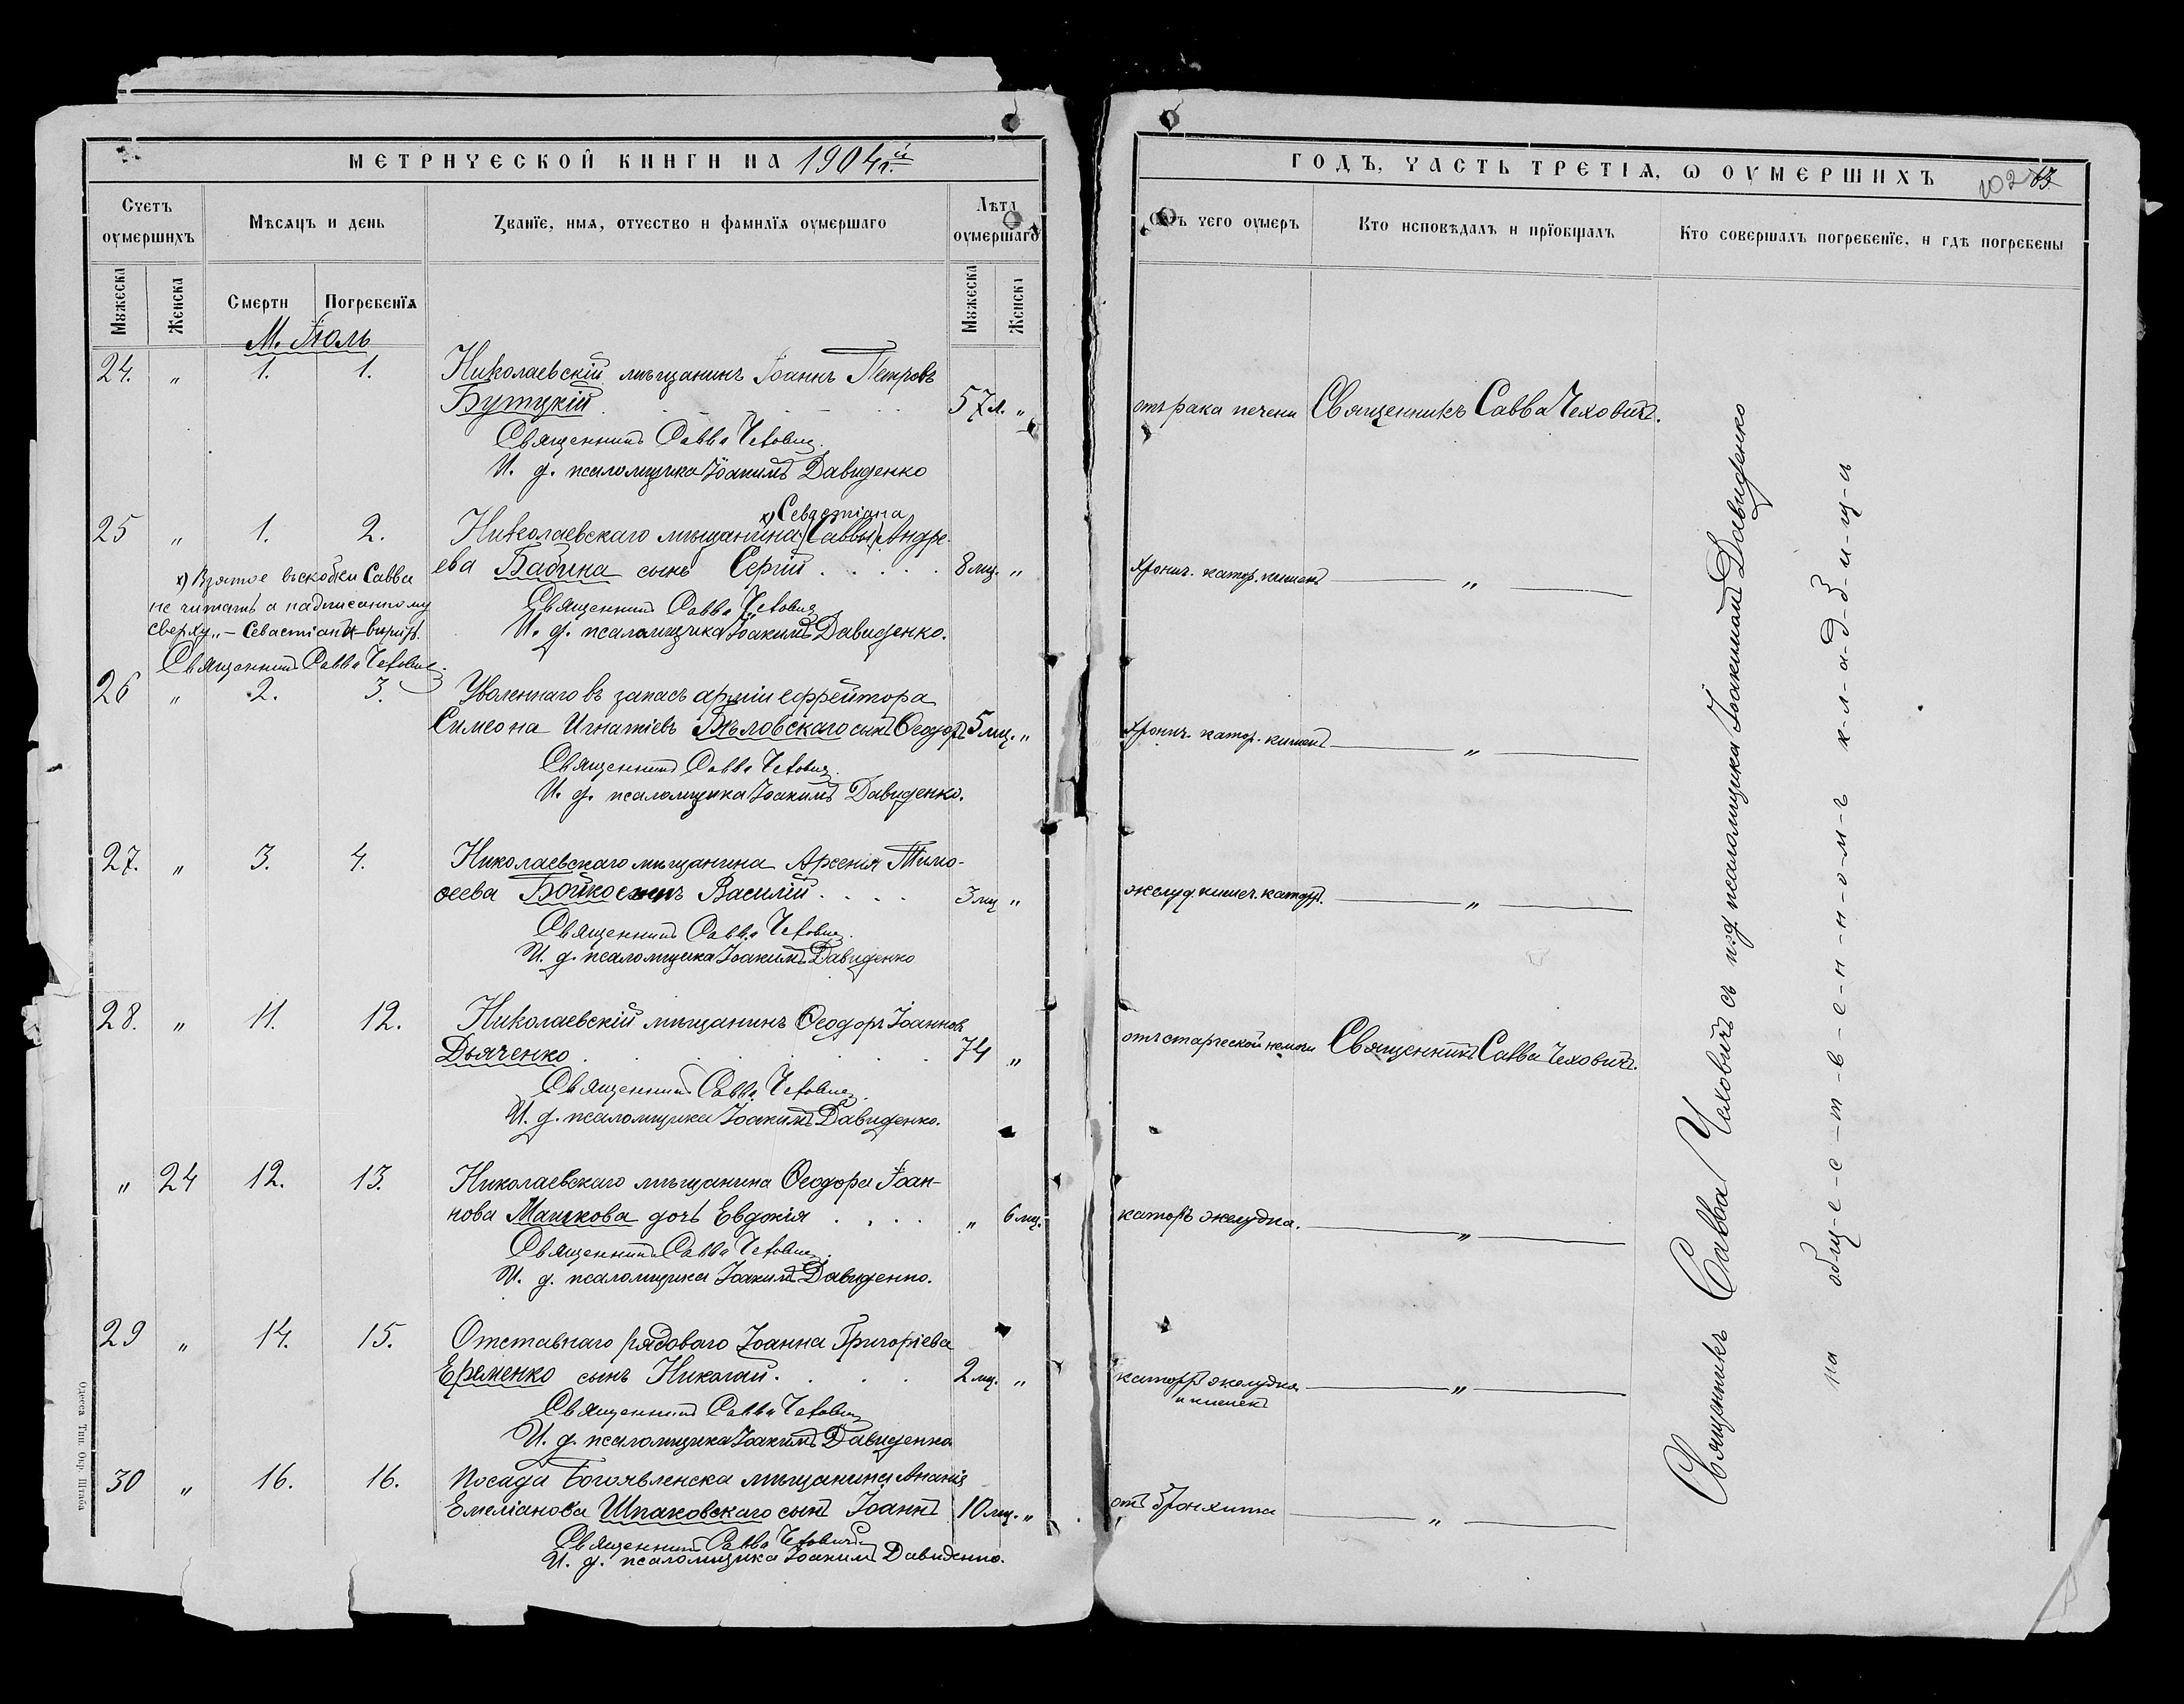 МЕТРИЧЕСКОЙ КНИГИ НА 1904й
Счетъ оумершихъ
Мѣсяцъ и день
Званїе, имя, отчество и фамилїя оумершаго
Лѣта оумершаго
Мужеска
Женска
Смерти
Погребенїя
Мужеска
Женска
М. Іюль
24. " 1. 1. Николаевскій мѣщанинъ Іоаннъ Петровъ
Бутцкій 57 л. "
Священникъ Савва Чехович
И. д. псаломщика Іоакимъ Давиденко
х) Севастіана
25 " 1. 2. Николаевскаго мѣщанина (Саввы) Андре-
ева Бабина сынъ Сергій 8 мц. "
Священникъ Савва Чехович
И. д. псаломщика Іоакимъ Давиденко.
х) Взятое въ скобки Савва
не читать а надписанному
сверху „Севастіана" вѣрить.
Священникъ Савва Чехович.
26 " 2. 3. Уволеннаго въ запасъ арміи ефрейтора
Симеона Игнатіевъ Бѣловскаго сынъ Ѳеодоръ 5 мц. "
Священникъ Савва Чехович
И. д. псаломщика Іоакимъ Давиденко.
27. " 3. 4. Николаевскаго мѣщанина Арсенія Тимо-
ѳеева Бойко сынъ Василій 3 мц "
Священникъ Савва Чехович.
И. д. псаломщика Іоакимъ Давиденко
28. " 11. 12. Николаевскій мѣщанинъ Ѳеодоръ Іоанновъ
Дьяченко 74 "
Священникъ Савва Чехович.
И. д. псаломщика Іоакимъ Давиденко.
" 24 12. 13. Николаевскаго мѣщанина Ѳеодора Іоан-
нова Машкова дочь Евдокія " 6 мц.
Священникъ Савва Чехович.
И. д. псаломщика Іоакимъ Давиденко.
29 " 14. 15. Отставнаго рядоваго Іоанна Григоріева
Еременко сынъ Николай. 2 мц. "
Священникъ Савва Чехович
И. д. псаломщика Іоакимъ Давиденко
30 " 16. 16. Посада Богоявленска мѣщанина Ананія
Емеліанова Шпаковскаго сынъ Іоаннъ 10 мц. "
Священникъ Савва Чеховичъ
И. д. псаломщика Іоакимъ Давиденко.
Одесса Тип. Окр. Штаба
ГОДЪ, ЧАСТЬ ТРЕТІЯ, Ѡ ОУМЕРШИХЪ
102
Отъ чего оумеръ
Кто исповѣдалъ и прїобщалъ
Кто совершалъ погребенїе, и гдѣ погребены
отъ рака печени Священникъ Савва Чеховичъ.
хронич. катар. кишекъ "
хронич. катар. кишекъ "
желуд. кишеч. катарръ. "
отъ старческой немочи Священникъ Савва Чеховичъ.
катаръ желудка. "
катарръ желудка "
и кишекъ
отъ бронхита "
Священникъ Савва Чеховичъ съ и. д. псаломщика Іоакимомъ Давиденко
на общ-е-с-т-в-е-н-н-о-м-ъ к-л-а-д-б-и-щ-ѣ